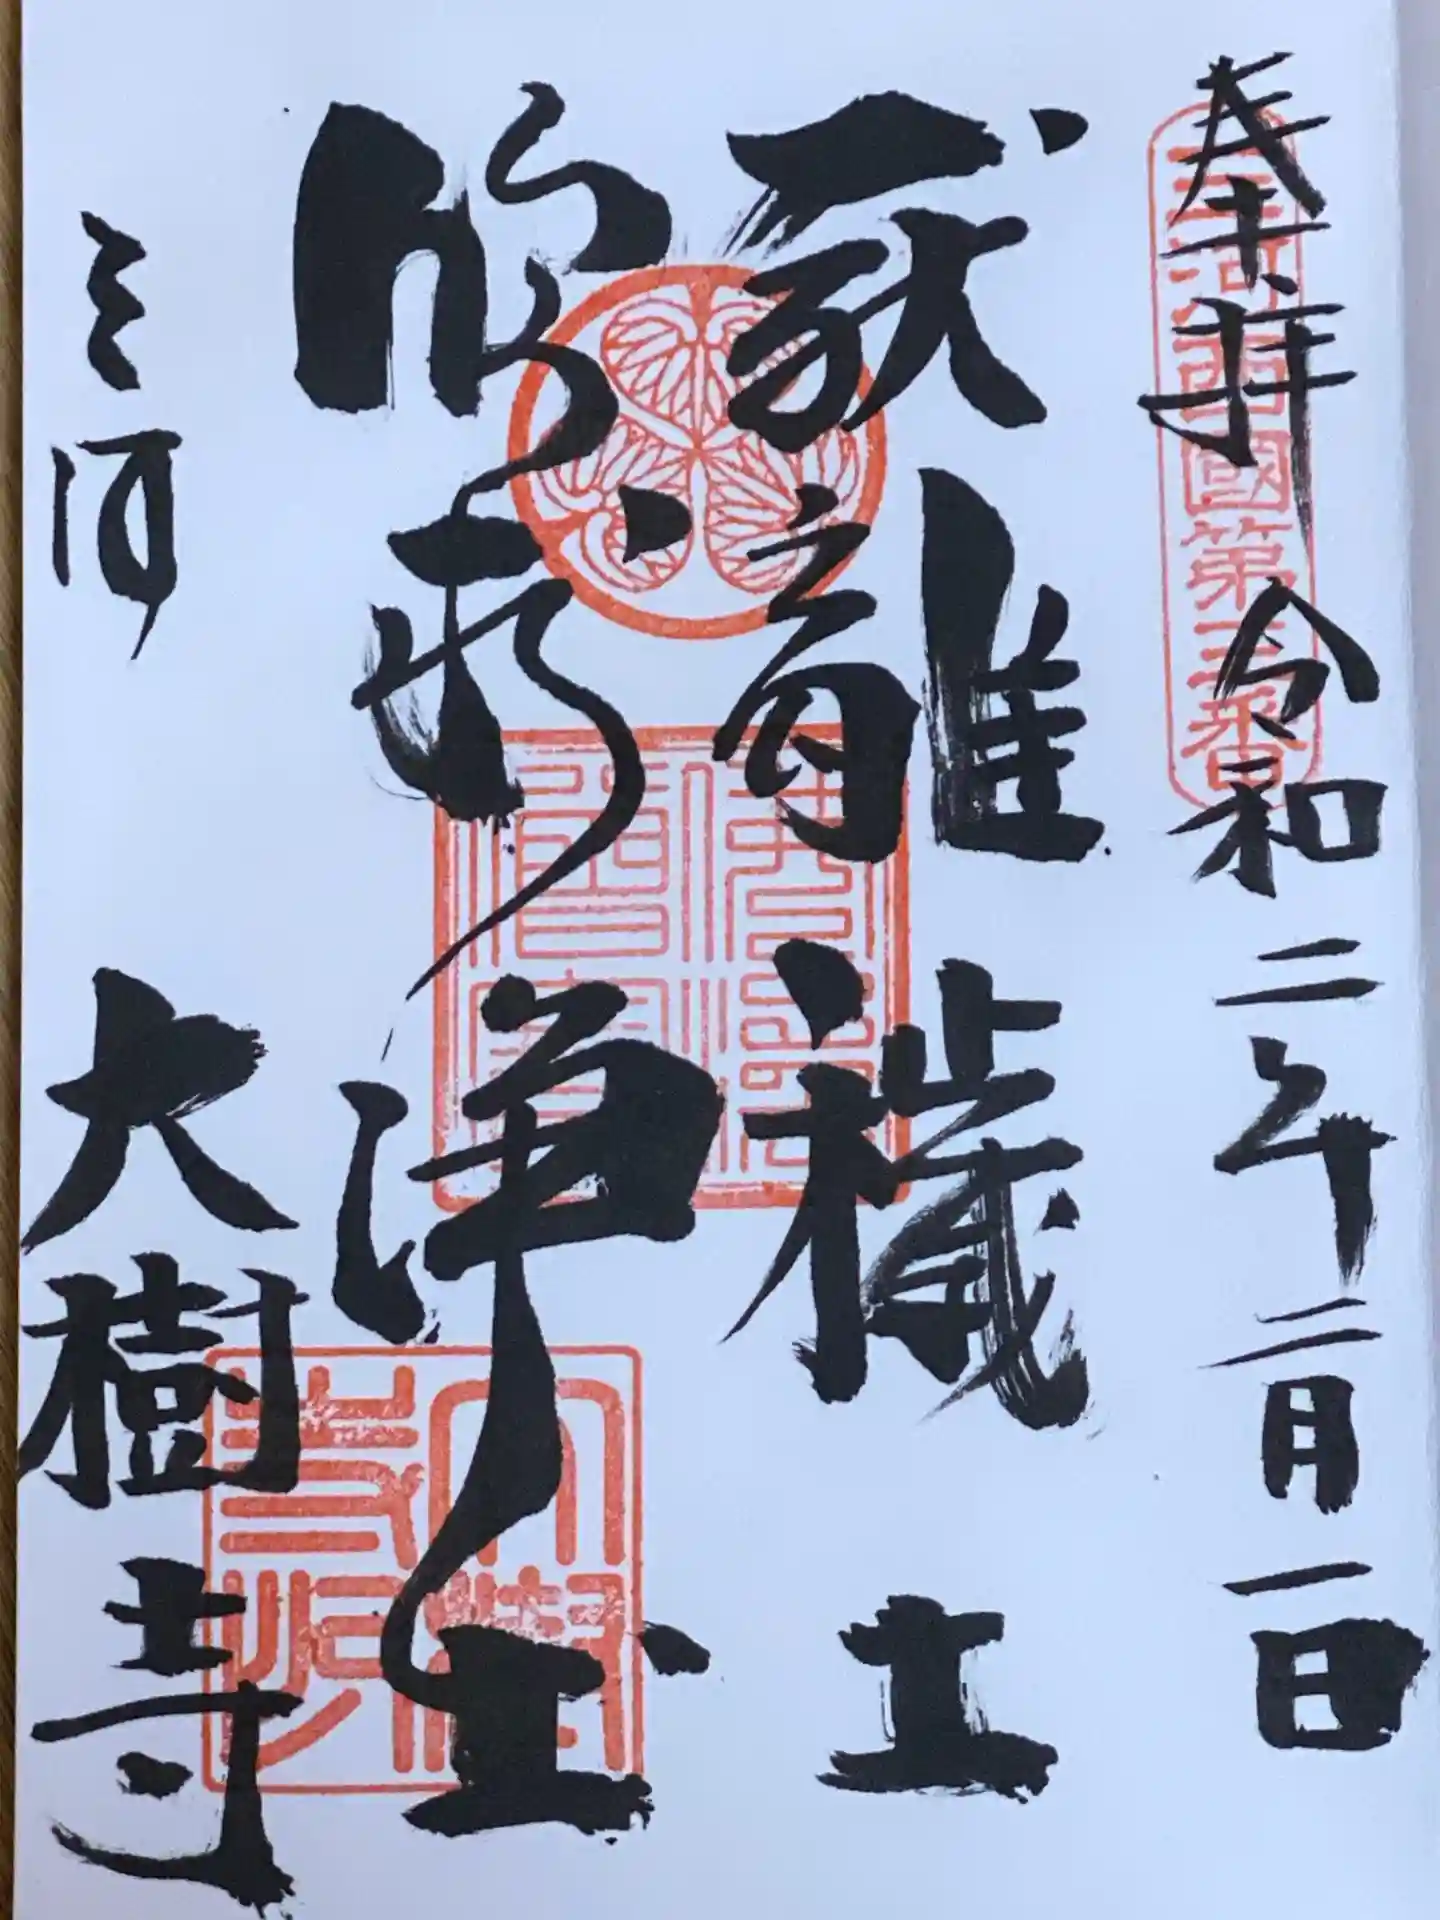 奉拝 令和二年二月一日
三河西國第三番
厭離穢土
欣求浄土
三河 大樹寺